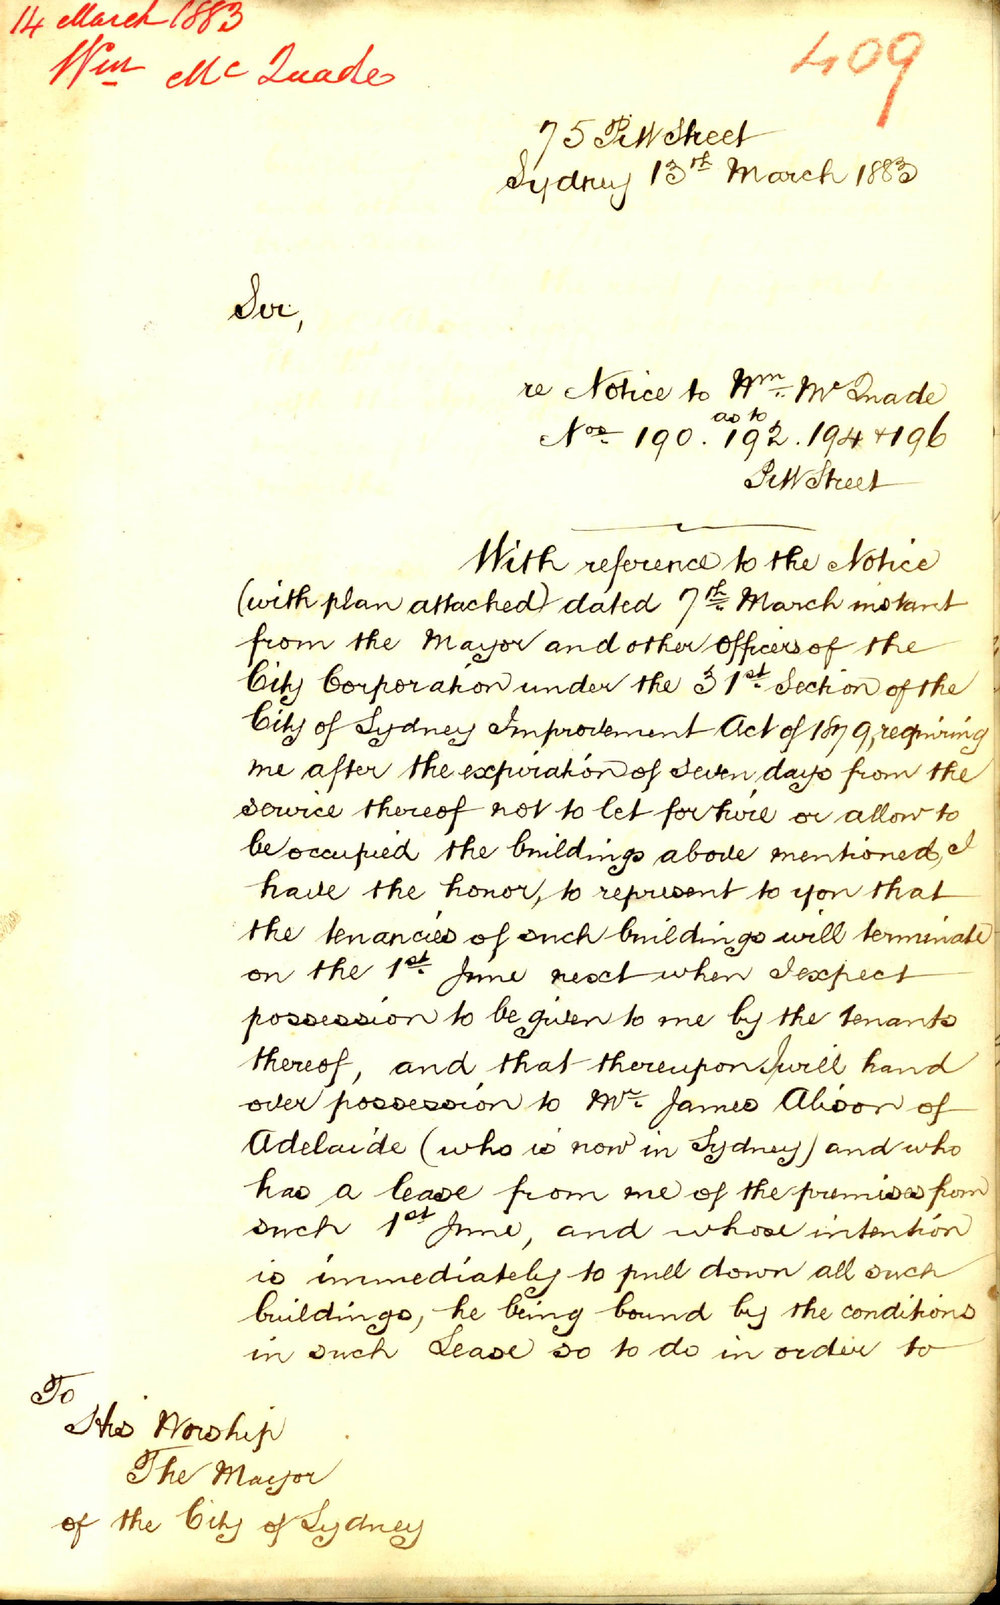 14 March 1883
Wm Mc Quade
409
75 Pitt Street
Sydney 13th March 1883
Sir,
re Notice to Wm. McQuade
as to
Nos 190. 192. 194 & 196
Pitt Street
With reference to the Notice
(with plan attached) dated 7th March instant
from the Mayor and other Officers of the
City Corporation under the 31st Section of the
City of Sydney Improvement Act of 1879, requiring
me after the expiration of seven days from the
service thereof not to let for hire or allow to
be occupied the buildings above mentioned, I
have the honor, to represent to you that
the tenancies of such buildings will terminate
on the 1st June next when I expect
possession to be given to me by the tenants
thereof, and that thereupon I will hand
over possession to Mr. James Alison of
Adelaide (who is now in Sydney) and who
has a lease from me of the premises from
such 1st June, and whose intention
is immediately to pull down all such
buildings, he being bound by the conditions
in such Lease so to do in order to
To
His Worship
The Mayor
of the City of Sydney